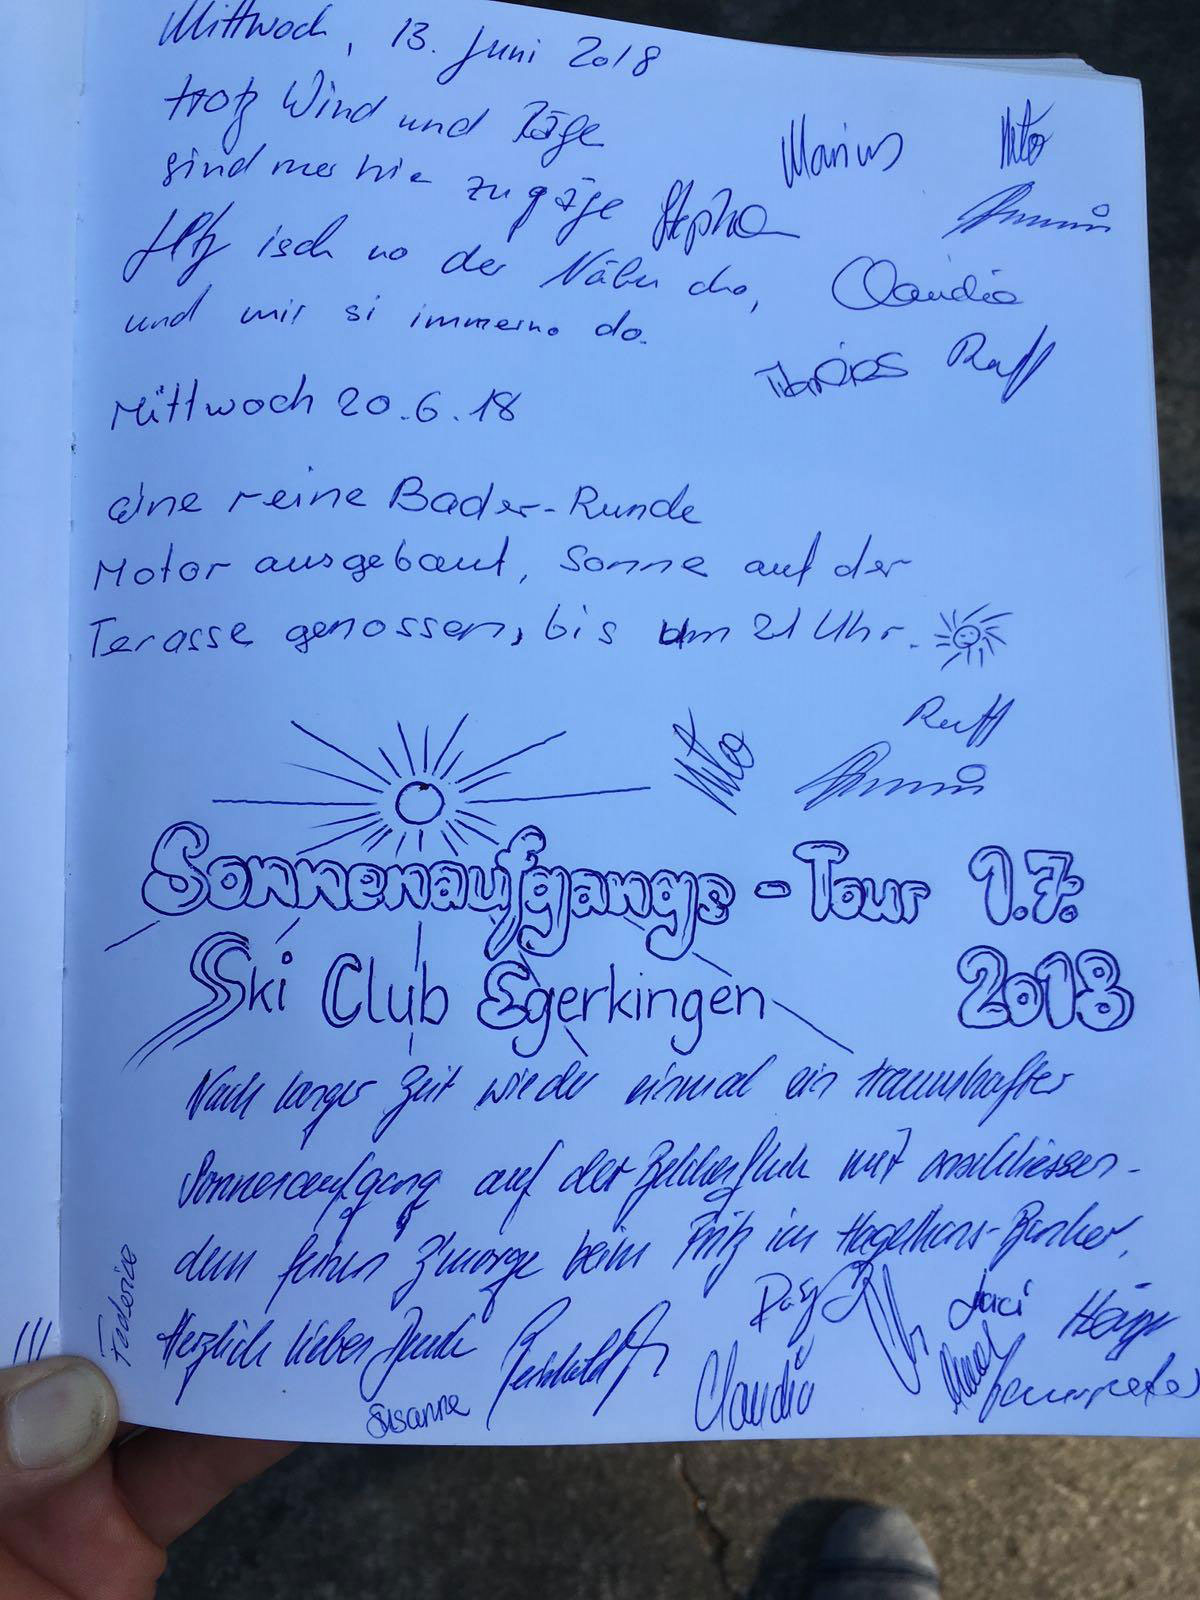 Mittwoch, 13. Juni 2018
trotz Wind und Räge
sind mer hie zugäge
Jetz isch no der Näbu cho,
und mir si immerno do.
Marius
Stepha
Claudia
Raff
Mittwoch 20.6.18
eine reine Bader-Runde
Motor ausgebaut, Sonne auf der
Terasse genossen, bis um 21 Uhr.
Raff
Sonnenaufgangs-Tour 1.7.
Ski Club Egerkingen 2018
Nach langer Zeit wieder einmal ein traumhafter
Sonnenaufgang auf der Belchenflueh mit anschliessen-
dem feinen Z'morge beim Fritz im Hagelhans-Bunker.
Herzlich lieber Dank
Federico
Susanne
Claudia